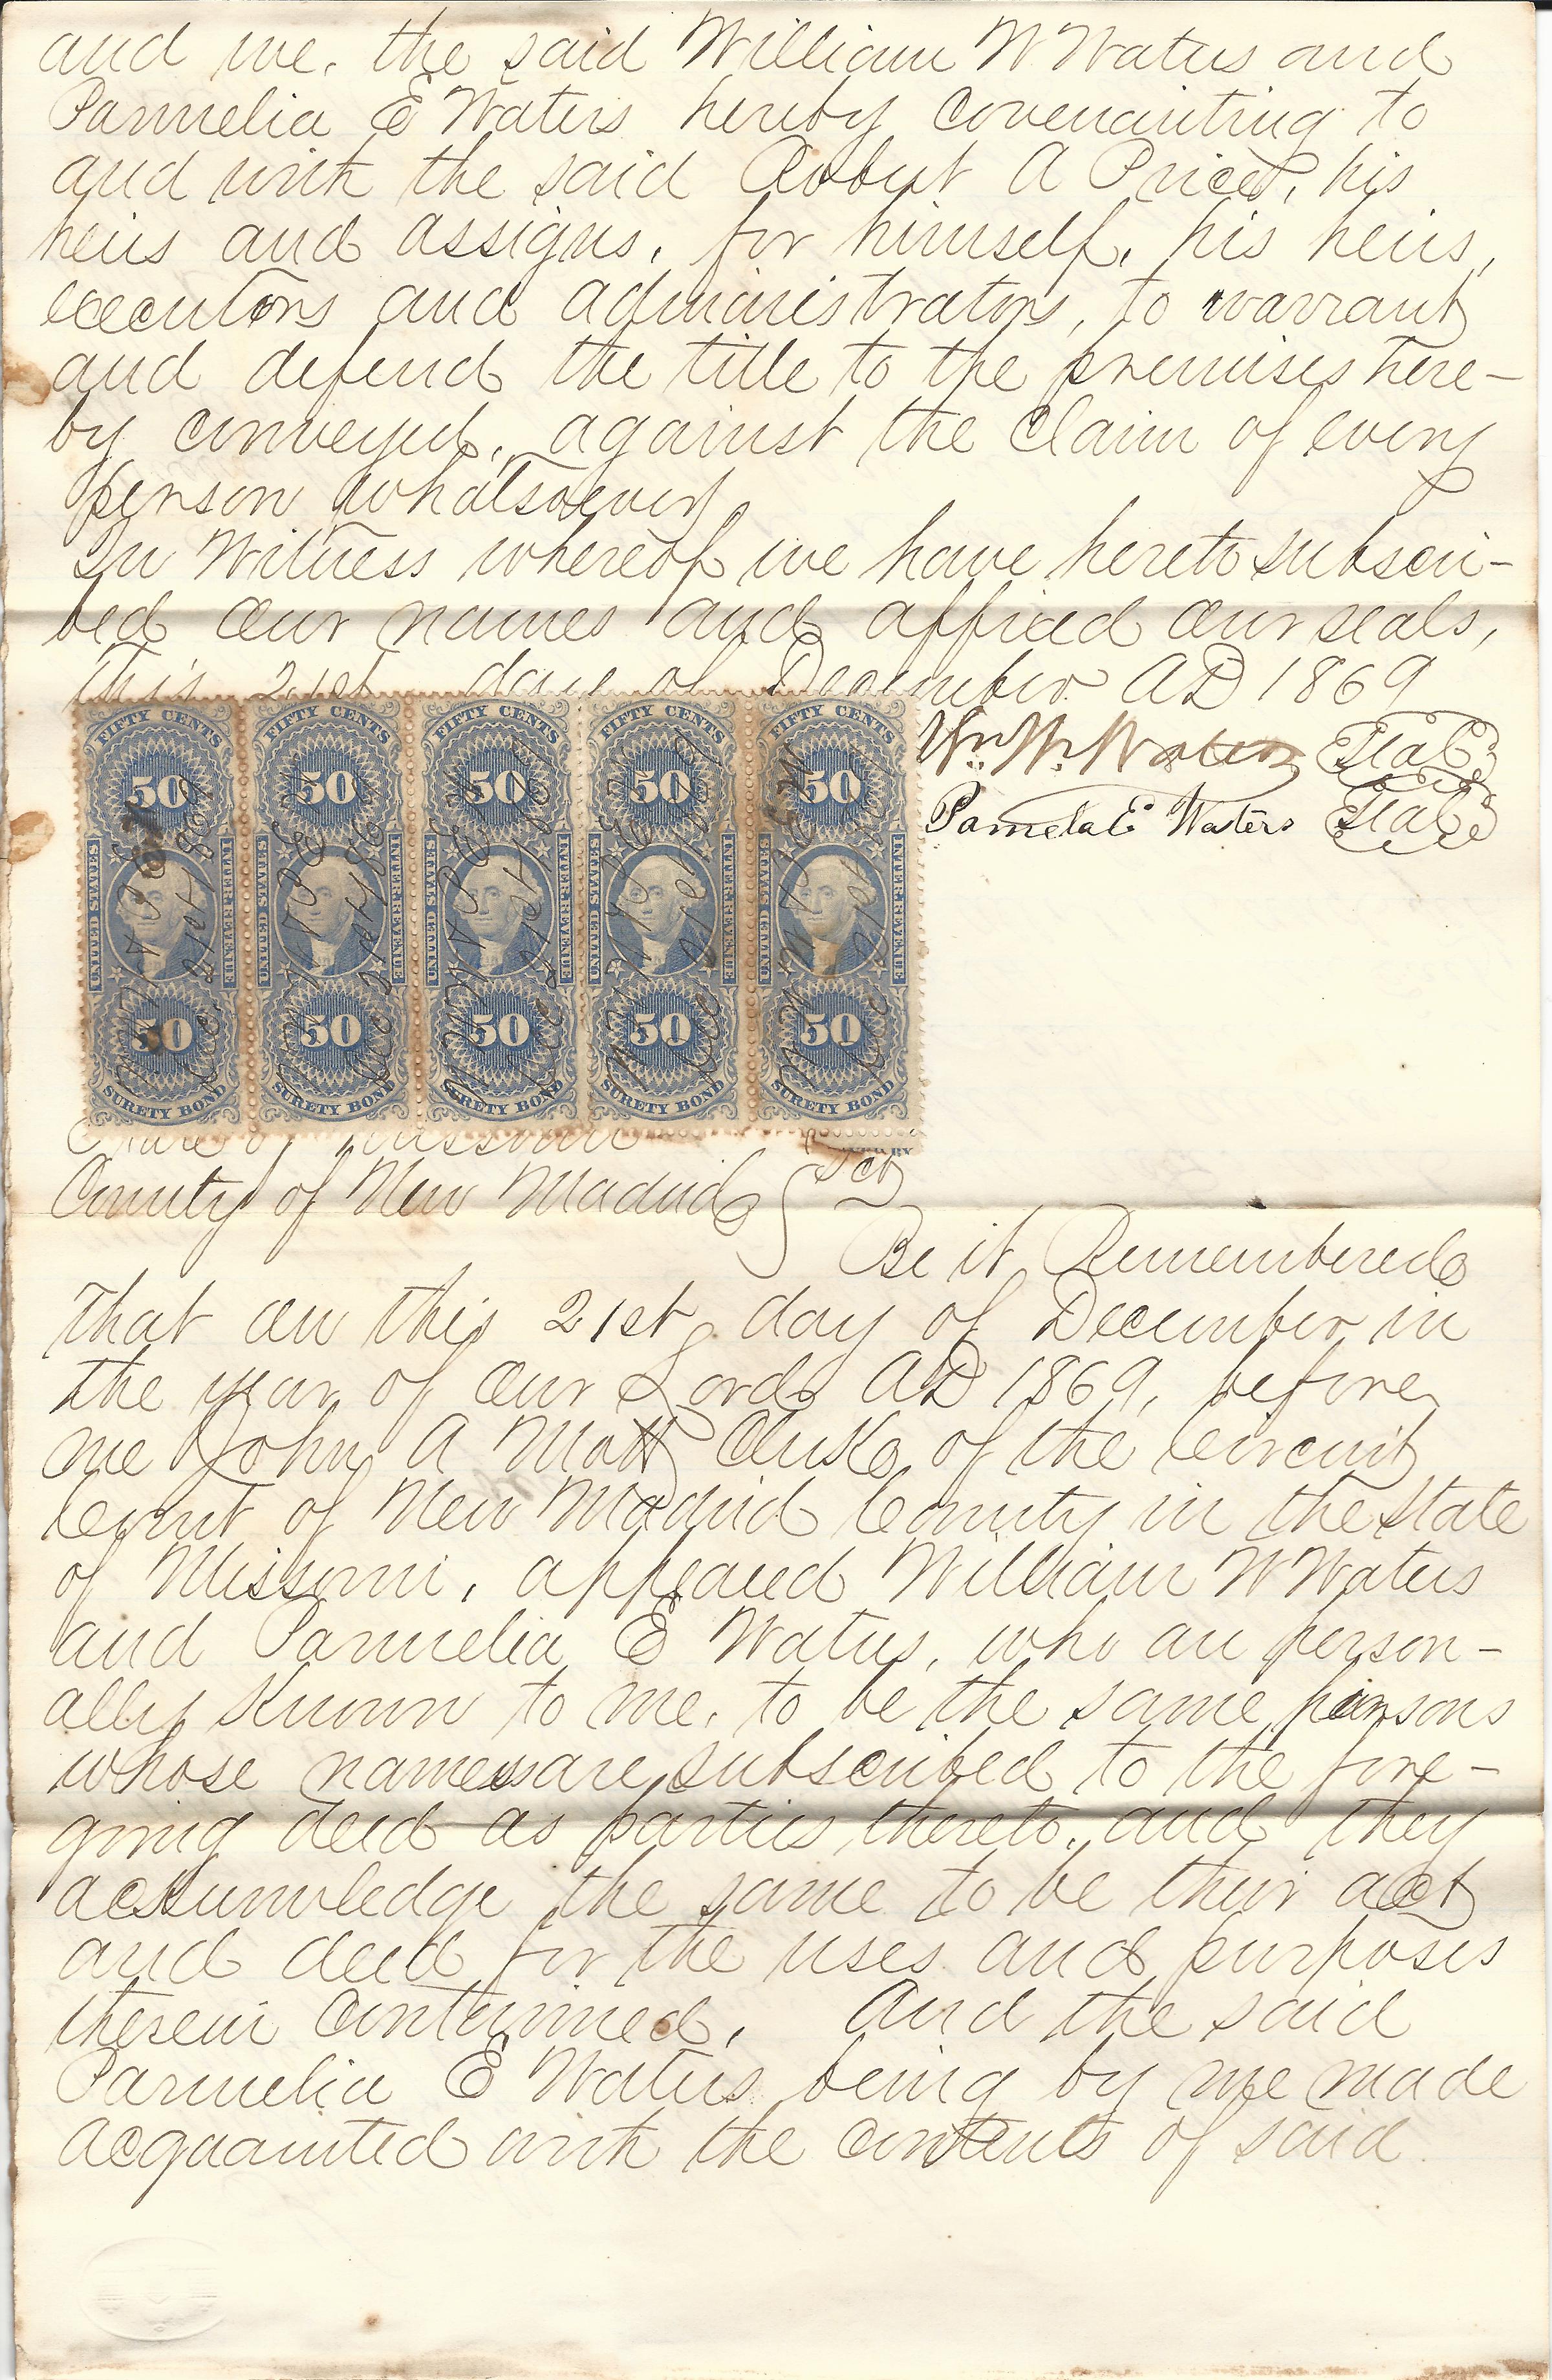 and we, the said William W Waters and
Parmelia E Waters hereby covenanting to
and with the said Robert A Price, his
heirs and assigns, for himself, his heirs,
executors and administrators, to warrant
and defend the title to the premises here-
by conveyed, against the claim of every
person whatsoever
In Witness whereof we have hereto subscri-
bed our names and affixed our seals,
this 21st day of December AD 1869
Wm. W. Waters Seal
Pamela E Waters Seal
FIFTY CENTS FIFTY CENTS FIFTY CENTS FIFTY CENTS FIFTY CENTS
50 50 50 50 50
UNITED STATES INTER. REVENUE UNITED STATES INTER. REVENUE UNITED STATES INTER. REVENUE UNITED STATES INTER. REVENUE UNITED STATES INTER. REVENUE
50 50 50 50 50
SURETY BOND SURETY BOND SURETY BOND SURETY BOND SURETY BOND
State of Missouri
County of New Madrid } Sct
Be it Remembered
that on this 21st day of December in
the year of our Lord AD 1869, before
me John A Mott Clerk of the Circuit
Court of New Madrid County in the State
of Missouri, appeared William W Waters
and Parmelia E Waters, who are person-
ally known to me, to be the same persons
whose names are subscribed to the fore-
going deed as parties thereto, and they
acknowledge the same to be their act
and deed for the uses and purposes
therein contained. And the said
Parmelia E Waters being by me made
acquainted with the contents of said